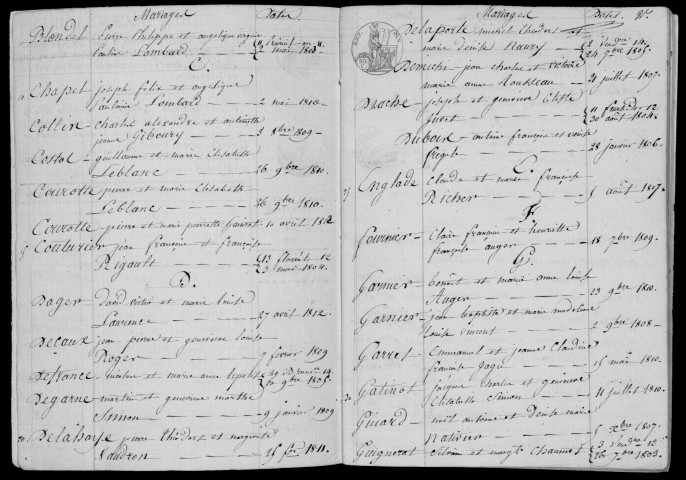 Mariages Dates
Blondel Pierre Philippe et angelique
Lombard
C.
Chapet joseph felix et angelique
Lombard 2 mai 1810
Collin charles alexandre et antoinette
jeanne Giboury 3 8bre 1809
Costol guillaume et marie Elisabeth
Leblanc 26 9bre 1810
Courotte pierre et marie Elisabeth
Leblanc 26 9bre 1810
Courotte pierre et marie pierrette 10 avril 1812
Couturier jean françois et françoise
Rigault 13 floréal 12
3 mai 1804
D.
Dager et marie louise
Laurence 27 avril 1812
Decaux jean pierre et genevieve louise
Roger 7 fevrier 1809
Defrance nicolas et marie anne 14
9bre 1805
Degarne martin et genevieve marthe
Simon 9 janvier 1809
Delahaye pierre et marguerite
1811
Mariages Dates
Delaporte et
marie denise Naury 14
1805
Demichi jean charles et victoire
marie anne Rousseau 21 juillet 1807
Drache joseph et genevieve
furet 11 fructidor 12
30 août 1804
Dubois antoine françois et
28 janvier 1806
E.
Englade Claude et marie françoise
Richer 5 août 1807
F.
Fournier Clair françois et henriette
françoise auger 18 7bre 1809
G.
Garnier benoît et marie anne louise
Auger 23 9bre 1810
Garnier jean baptiste et marie madeleine
louise 2 9bre 1808
Garret Emmanuel et jeanne Claudine
françoise 15 mai 1810
Gatinot jacques charles et genevieve
Elisabeth Simon 11 juillet 1810
Guiard noël antoine et denise marie
Nativier 1807
Guignerat Silvain et margte Chaumet 3 12
26 7bre 1803